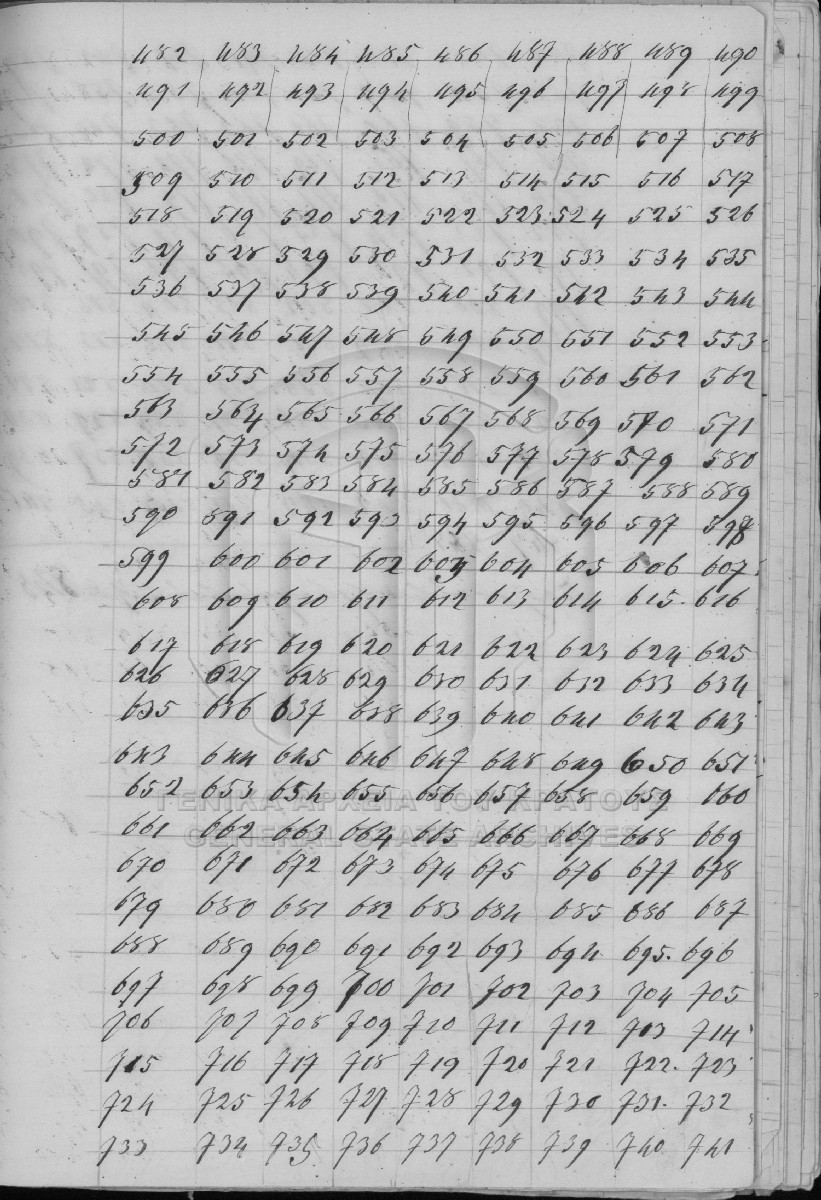 482 483 484 485 486 487 488 489 490
491 492 493 494 495 496 497 498 499
500 501 502 503 504 505 506 507 508
509 510 511 512 513 514 515 516 517
518 519 520 521 522 523 524 525 526
527 528 529 530 531 532 533 534 535
536 537 538 539 540 541 542 543 544
545 546 547 548 549 550 551 552 553
554 555 556 557 558 559 560 561 562
563 564 565 566 567 568 569 570 571
572 573 574 575 576 577 578 579 580
581 582 583 584 585 586 587 588 589
590 891 592 593 594 595 596 597 598
599 600 601 602 603 604 605 606 607
608 609 610 611 612 613 614 615. 616
617 618 619 620 621 622 623 624 625
626 627 628 629 630 631 632 633 634
635 636 637 638 639 640 641 642 643
643 644 645 646 647 648 649 650 651
652 653 654 655 656 657 658 659 660
ΓΕΝΙΚΑ ΑΡΧΕΙΑ ΤΟΥ ΚΡΑΤΟΥΣ
661 662 663 664 665 666 667 668 669
GENERAL STATE ARCHIVES
670 671 672 673 674 675 676 677 678
679 680 681 682 683 684 685 686 687
688 689 690 691 692 693 694 695. 696
697 698 699 700 701 702 703 704 705
706 707 708 709 710 711 712 713 714
715 716 717 718 719 720 721 722. 723
724 725 726 727 728 729 730 731. 732
733 734 735 736 737 738 739 740 741